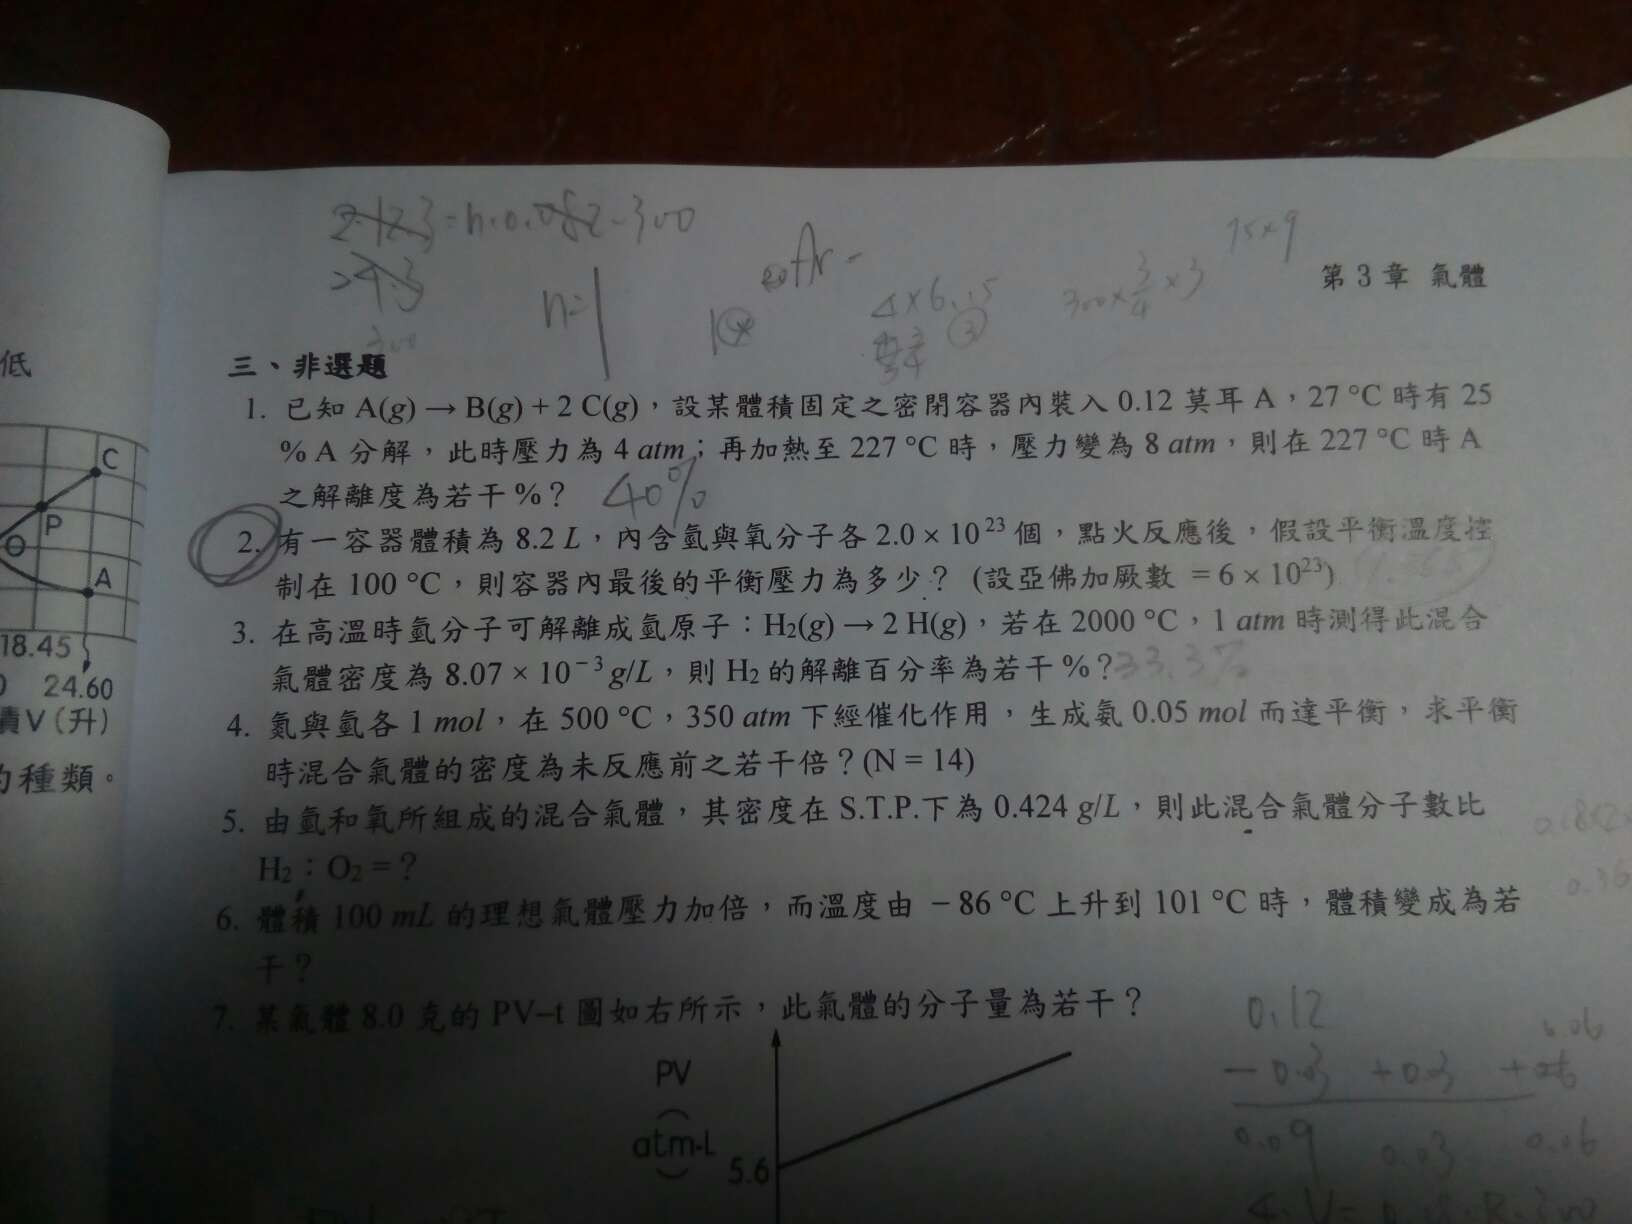 第 3 章 氣體
2·12.3 = n·0.082·300
24.3
300
n=1
Ar
75×9
300×3/4×3
低
三、非選題
1. 已知 A(g) → B(g) + 2 C(g)，設某體積固定之密閉容器內裝入 0.12 莫耳 A，27 °C 時有 25
% A 分解，此時壓力為 4 atm；再加熱至 227 °C 時，壓力變為 8 atm，則在 227 °C 時 A
之解離度為若干%？ 40%
2. 有一容器體積為 8.2 L，內含氫與氧分子各 2.0 × 10²³ 個，點火反應後，假設平衡溫度控
制在 100 °C，則容器內最後的平衡壓力為多少？ (設亞佛加厥數 = 6 × 10²³)
3. 在高溫時氫分子可解離成氫原子：H₂(g) → 2 H(g)，若在 2000 °C，1 atm 時測得此混合
氣體密度為 8.07 × 10⁻³ g/L，則 H₂ 的解離百分率為若干%？ 33.3%
4. 氮與氫各 1 mol，在 500 °C，350 atm 下經催化作用，生成氨 0.05 mol 而達平衡，求平衡
時混合氣體的密度為未反應前之若干倍？(N = 14)
5. 由氫和氧所組成的混合氣體，其密度在 S.T.P.下為 0.424 g/L，則此混合氣體分子數比
H₂：O₂ = ？
6. 體積 100 mL 的理想氣體壓力加倍，而溫度由 − 86 °C 上升到 101 °C 時，體積變成為若
干？
7. 某氣體 8.0 克的 PV–t 圖如右所示，此氣體的分子量為若干？
C
P
O
A
18.45
24.60
V (升)
的種類。
PV
(atm-L)
5.6
0.12
0.06
− 0.03 + 0.03 + 0.06
0.09 0.03 0.06